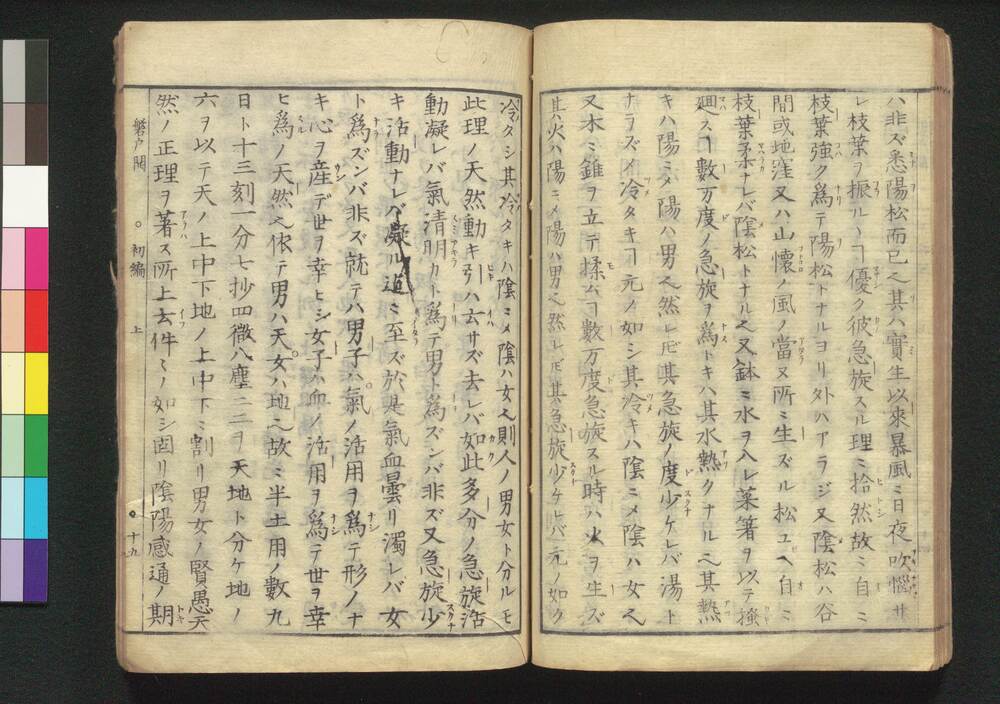 ハ非ズ悉陽松而已之其ハ實生以來暴風ミ日夜吹惱サ
レ枝葉ヲ振ルヿ優ク彼急旋スル理ミ拾然故ミ自ミ
枝葉強ク爲テ陽松トナルヨリ外ハアラジ又陰松ハ谷
間或地窪又ハ山懷ノ風ノ當又所ミ生ズル松ユヘ自ミ
枝葉柔ナレバ陰松トナル之又鉢ミ水ヲ入レ菜箸ヲ以テ搔
廻スヿ數万度ノ急旋ヲ爲トキハ其水熱クナル之其熱
キハ陽ミメ陽ハ男之然レ𪜈其急旋ノ度少ケレバ湯ト
ナラズ冷タキヿ元ノ如シ其冷キハ陰ミメ陰ハ女之
又木ミ錐ヲ立テ揉ムヿ數万度急旋スル時ハ火ヲ生ズ
其火ハ陽ミメ陽ハ男之然レ𪜈其急旋少ケレバ元ノ如ク
冷タシ其冷タキハ陰ミメ陰ハ女之則人ノ男女ト分ルモ
此理ノ天然動キ引ハ云サズ去レバ如此多分ノ急旋活
動凝レバ氣清明カト爲テ男ト爲ズンバ非ズ又急旋少
キ活動ナレバ凝ル迫ミ至ズ於是氣血曇リ濁レバ女
ト爲ズンバ非ズ就テハ男子ハ氣ノ活用ヲ爲テ形ノナ
キ心ヲ産デ世ヲ幸ヒシ女子ハ血ノ活用ヲ爲テ世ヲ幸
ヒ爲ノ天然之依テ男ハ天女ハ地之故ミ半土用ノ數九
日ト十三刻一分七抄四微八塵二三ヲ天地ト分ケ地ノ
六ヲ以テ天ノ上中下地ノ上中下ミ割リ男女ノ賢愚天
然ノ正理ヲ著ス所上去件ミノ如シ固リ陰陽感通ノ期
磐戸開 ○初編 上 十九